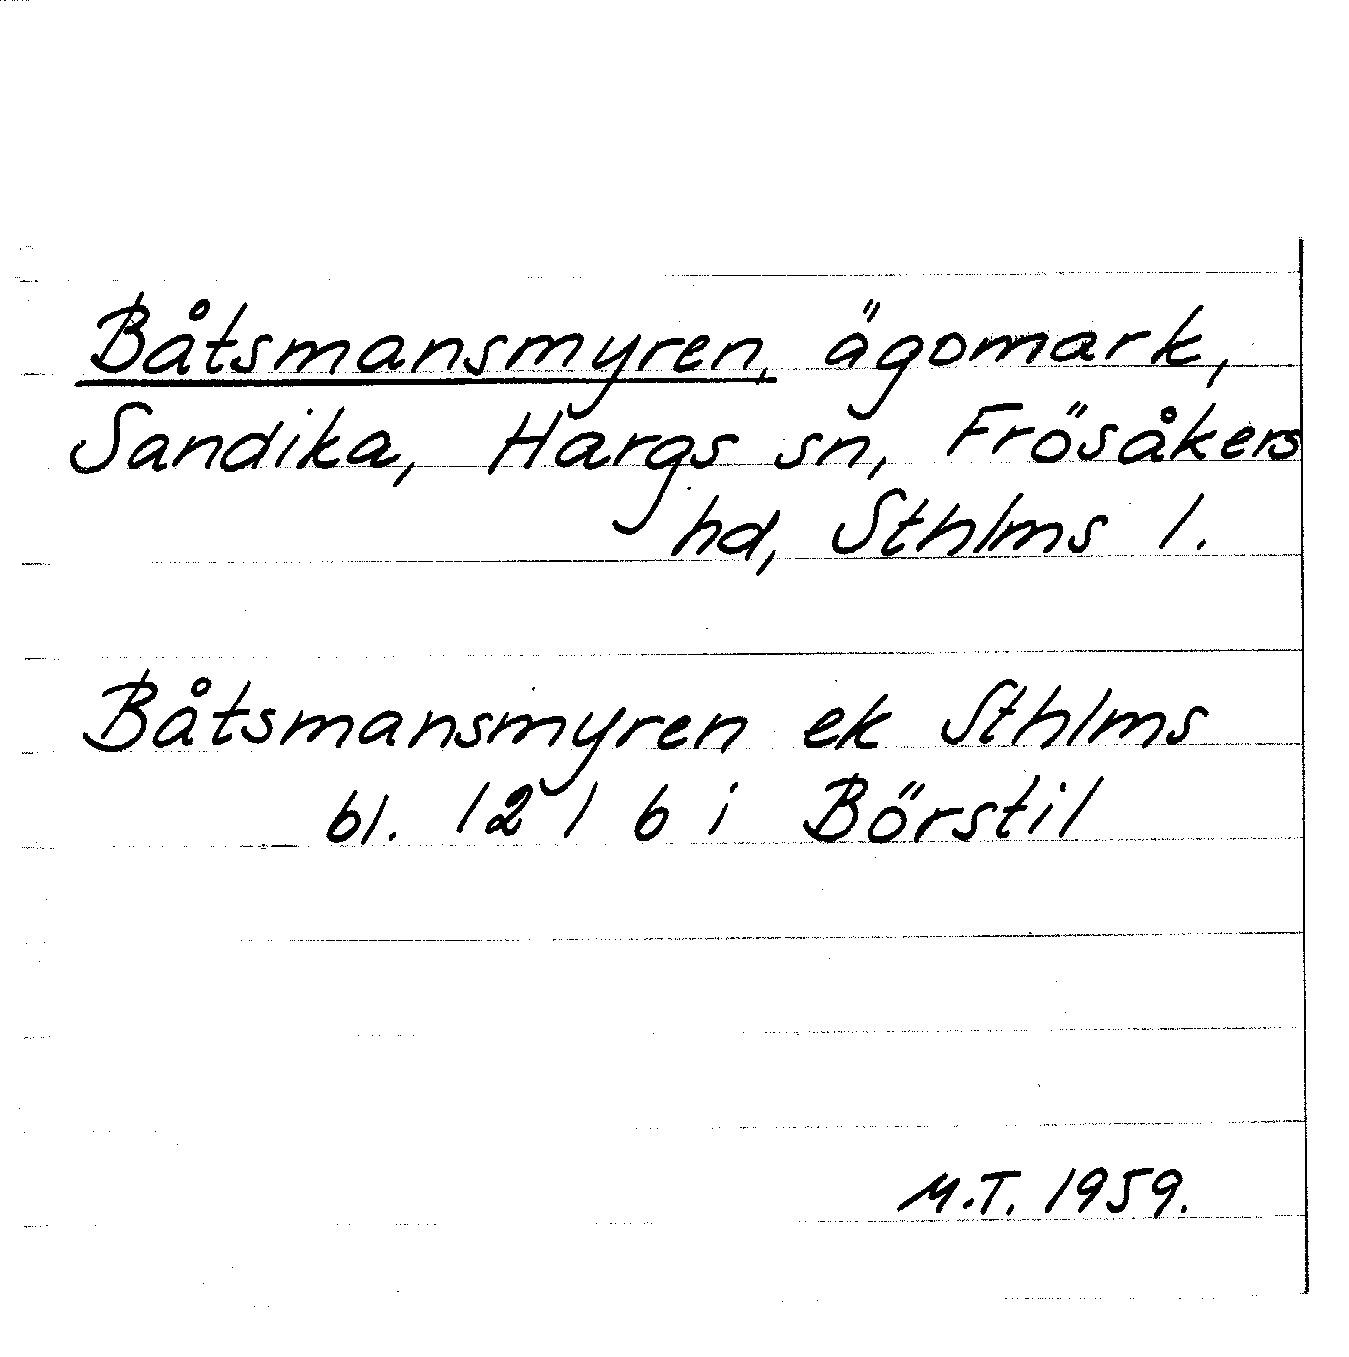 Båtsmansmyren, ägomark,
Sandika, Hargs sn, Frösåkers
hd, Sthlms l.
Båtsmansmyren ek Sthlms
bl. 121 b i Börstil
M.T. 1959.